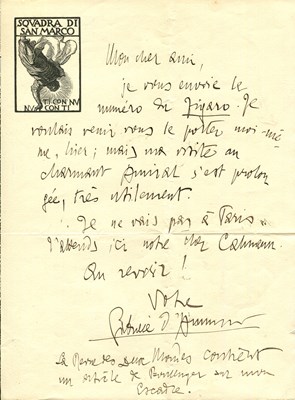 SQVADRA DI
SAN MARCO
TI CON NV
NVI CON TI
Mon cher ami,
je vous envoie le
numéro di Figaro. Je
voulais venir vous le porter moi-mê-
me, hier; mais ma visite au
charmant Amiral s'est prolon
gée, très utilement.
Je ne vais pas à Paris.
J'attends ici notre cher Calmann.
Au revoir!
Votre
Gabriele d'Annunzio
La Revue des Deux Mondes contient
un article de sur mon
Escadre.